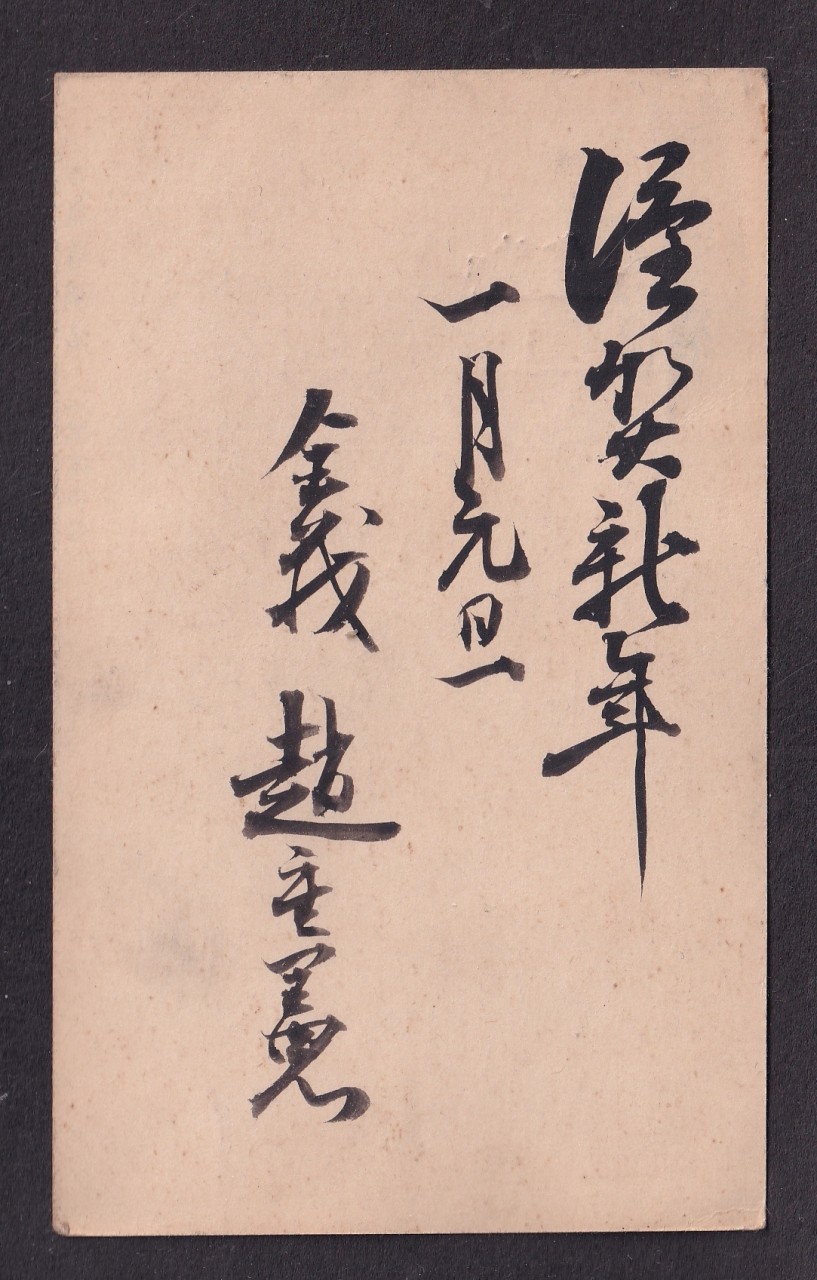 謹賀新年
一月元旦
金義 趙重憲